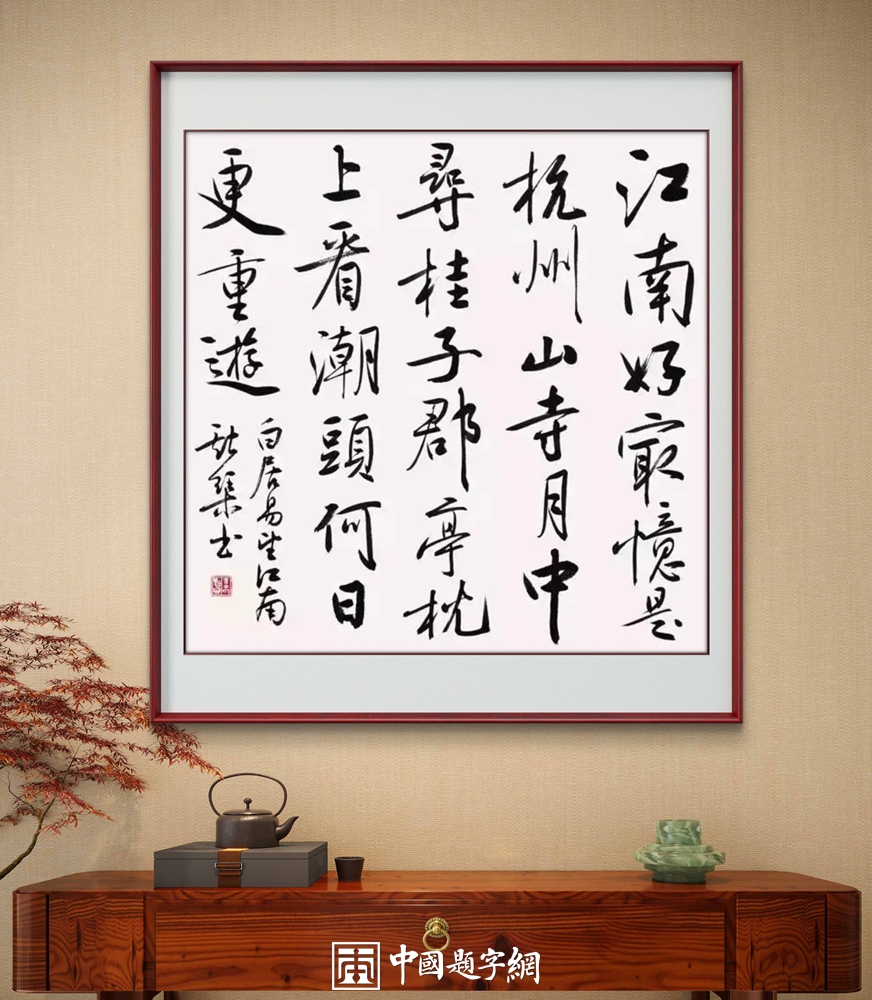 江南好㝡憶是
杭州山寺月中
尋桂子郡亭枕
上看潮頭何日
更重遊
白居易望江南
书
中國題字網